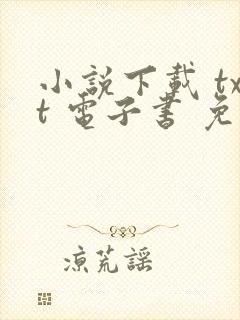 小說下載 tx
t 電子書 免
涼荒謠